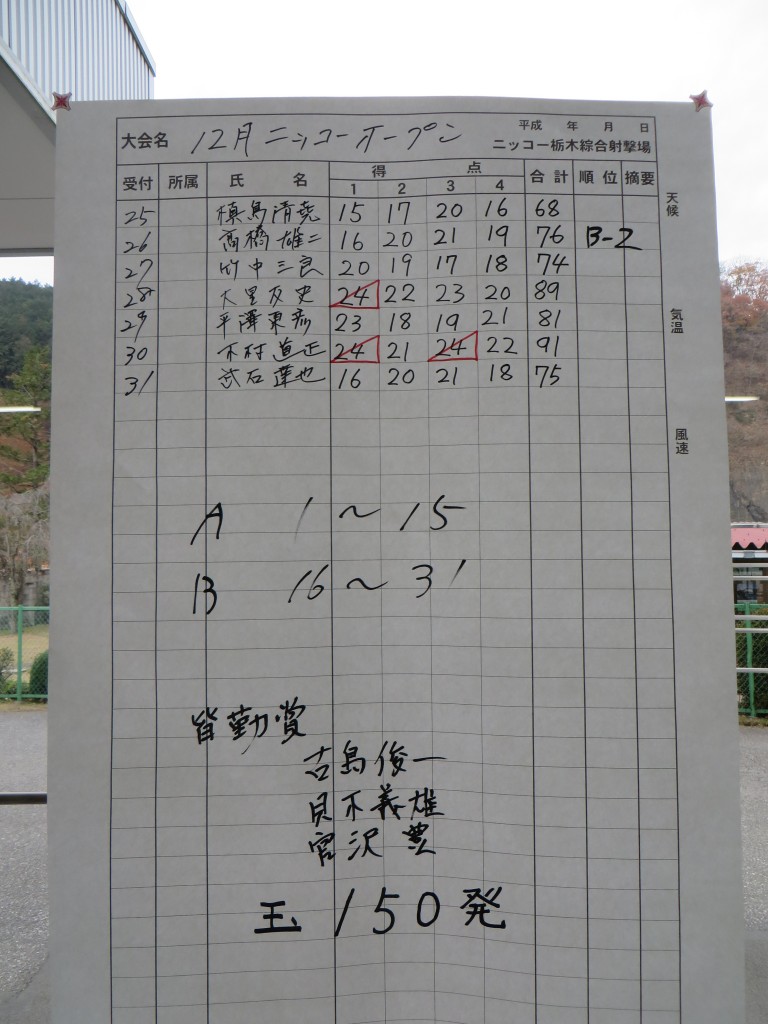 大会名 12月ニッコーオープン
平成 年 月 日
ニッコー栃木綜合射撃場
受付 所属 氏 名 得 点 合計 順位 摘要
1 2 3 4
25 槙島清尭 15 17 20 16 68
26 高橋雄二 16 20 21 19 76 B-2
27 竹中三良 20 19 17 18 74
28 大里友史 24 22 23 20 89
29 平澤東彦 23 18 19 21 81
30 木村道正 24 21 24 22 91
31 武石達也 16 20 21 18 75
天候
気温
風速
A 1~15
B 16~31
皆勤賞
古島俊一
貝木義雄
宮沢豊
玉150発